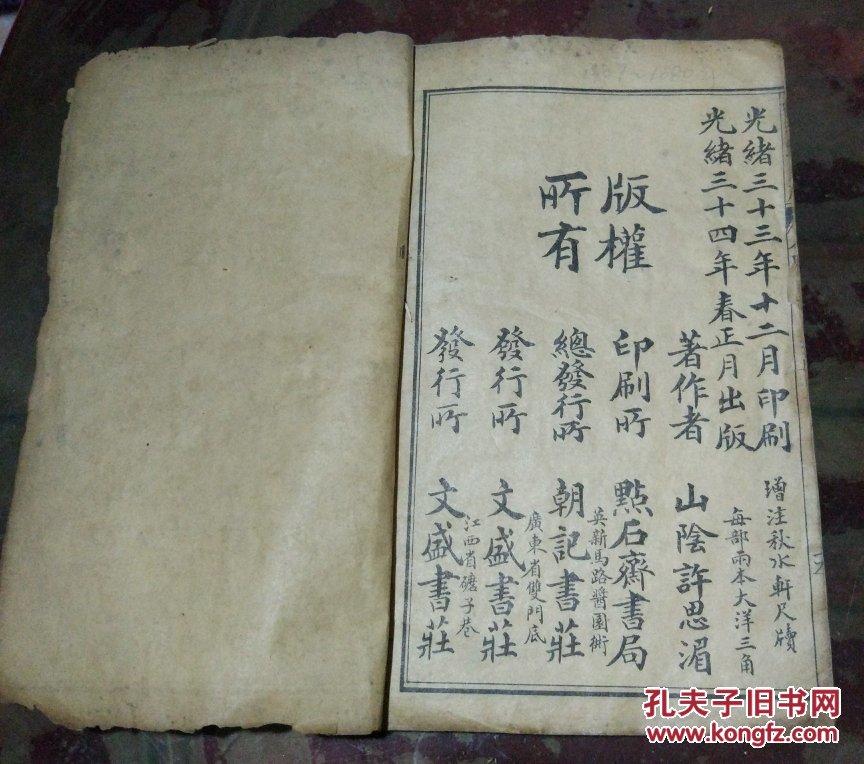 光緒三十三年十二月印刷
光緒三十四年春正月出版
增注秋水軒尺牘
每部兩本大洋三角
版權
所有
著作者 山陰許思湄
印刷所 點石齋書局
英新馬路醬園衖
總發行所 朝記書莊
廣東省雙門底
發行所 文盛書莊
江西省磨子巷
發行所 文盛書莊
孔夫子旧书网
www.kongfz.com